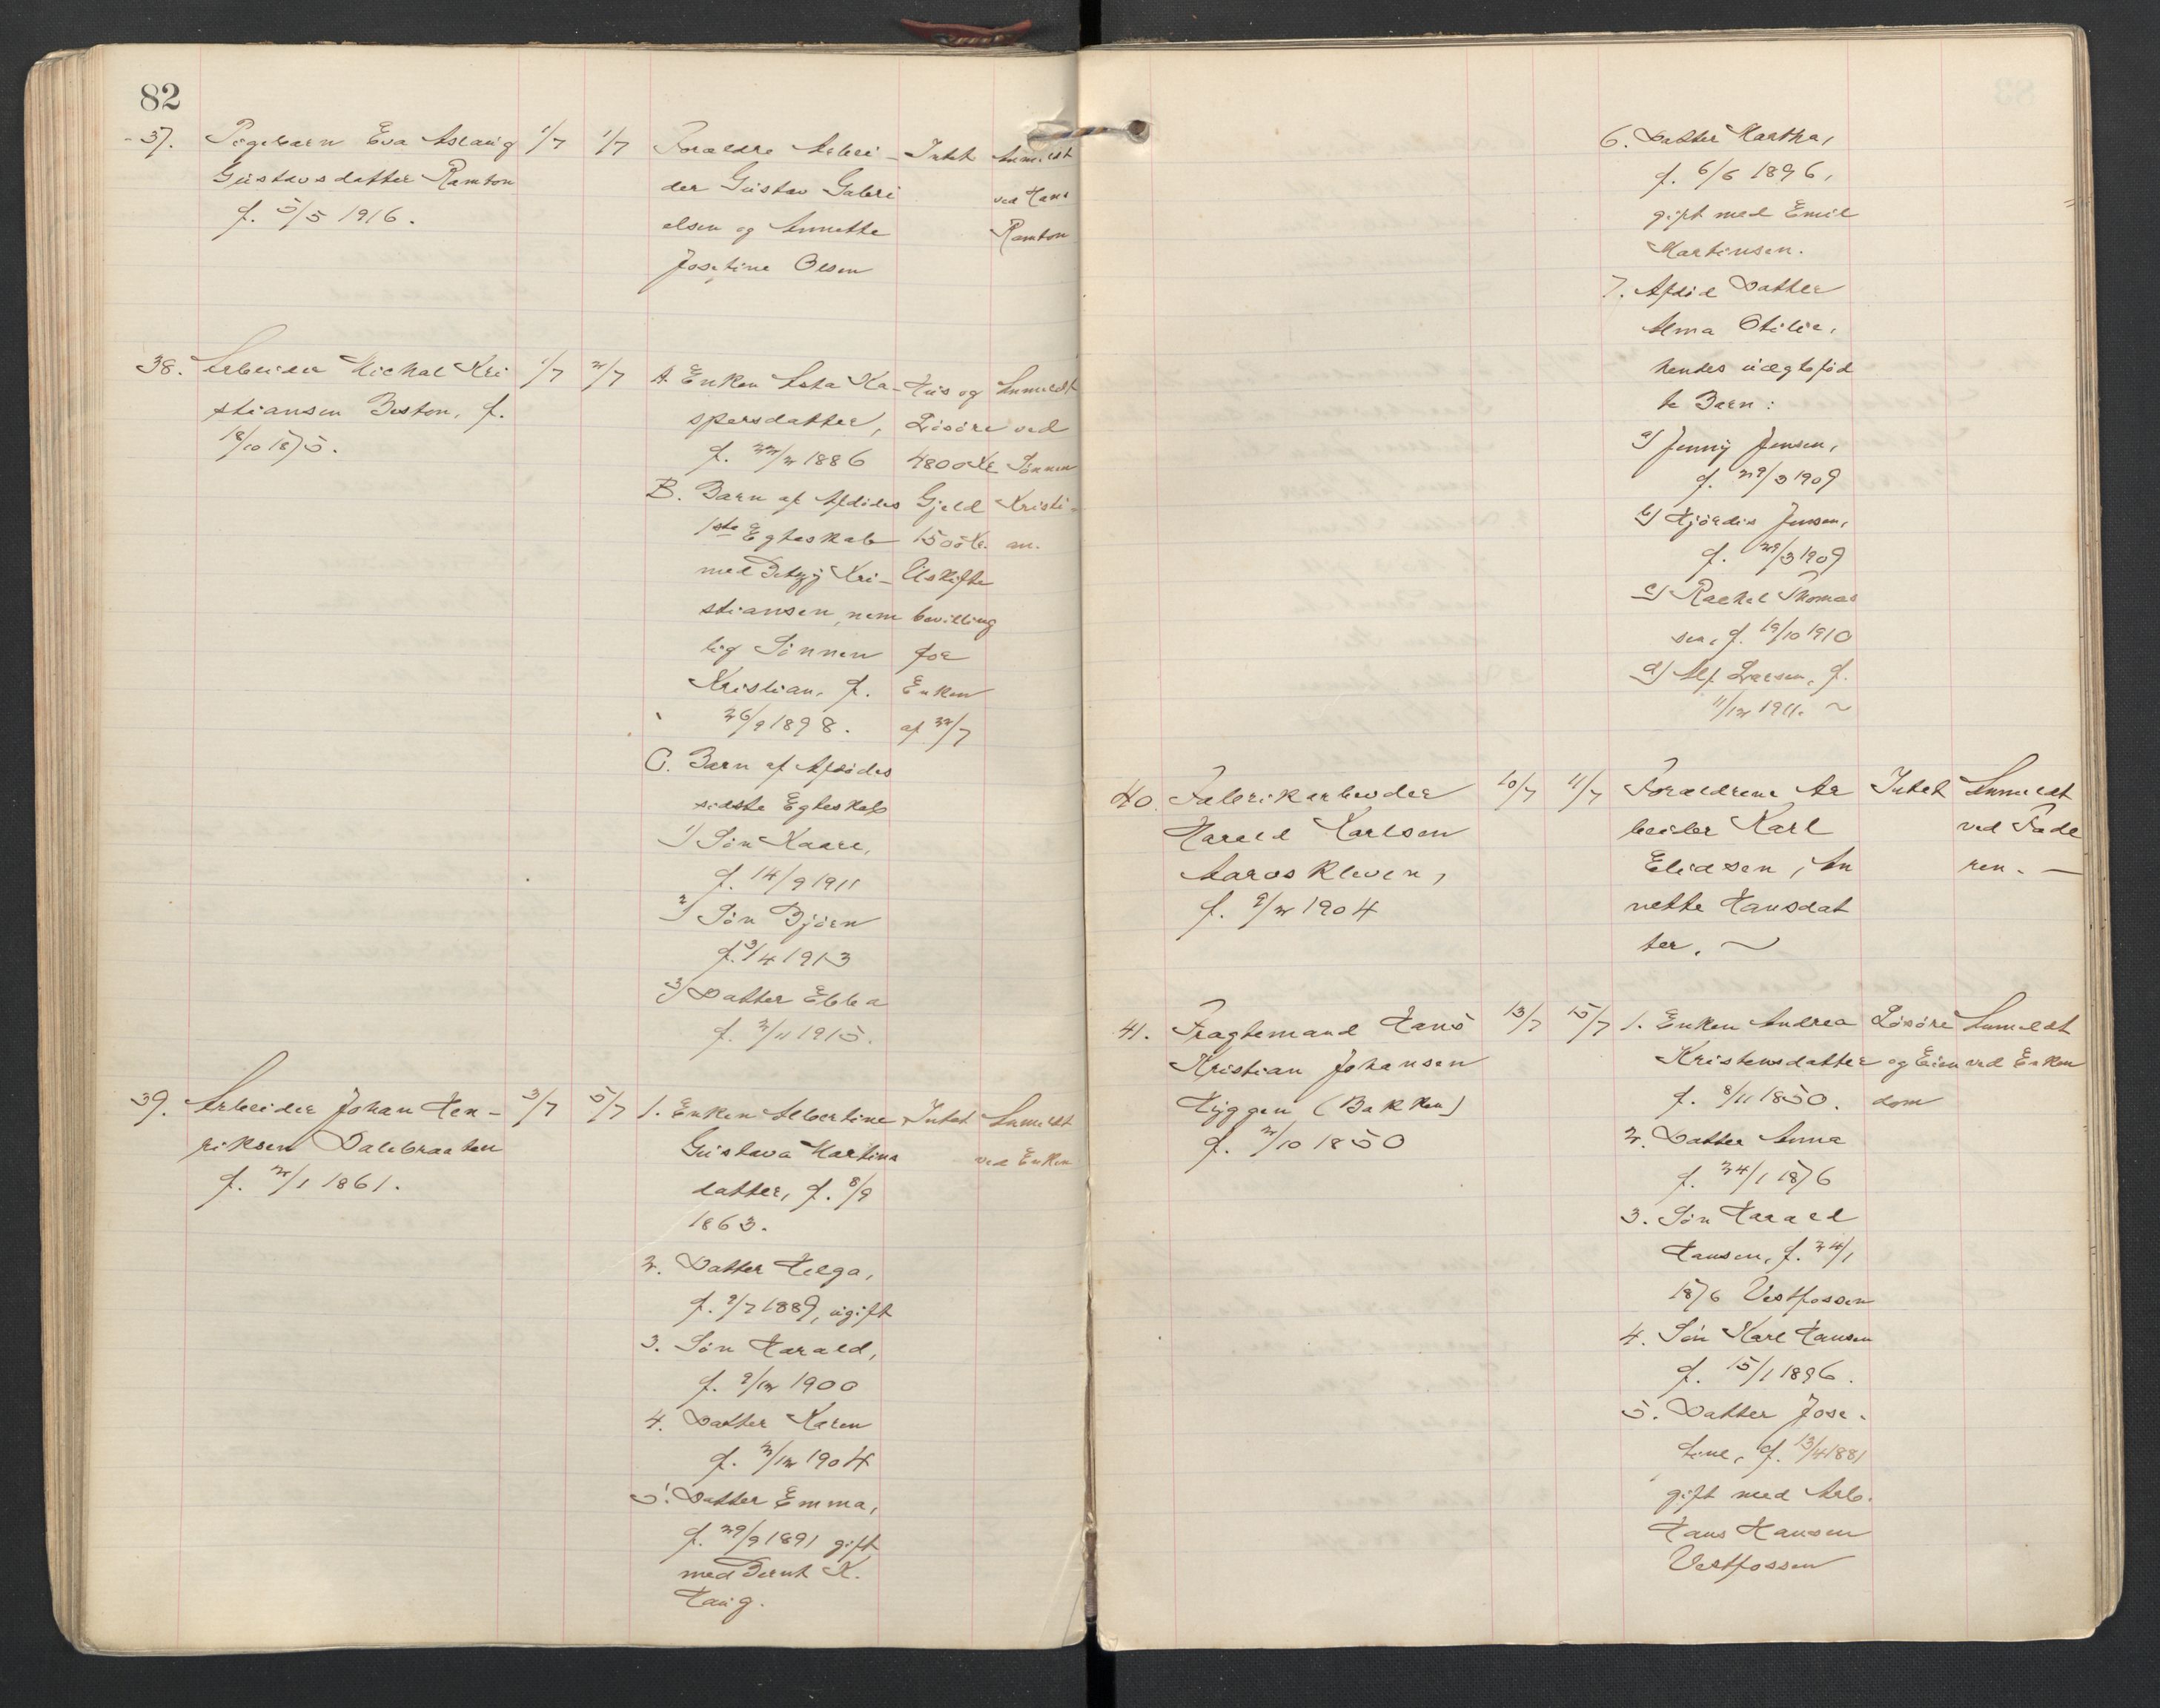 82
37. Pigebarn Eva Aslaug
Gustavsdatter Ramton
f. 5/5 1916.
1/7
1/7
Forældre Arbei-
der Gustav Gabri
elsen og Annette
Josefine Olsen
Intet
Anmeldt
ved Hans
Ramton
38. Arbeider Michal Kri
stiansen Boston, f.
18/10 1875.
1/7
2/7
A. Enken Asta Ka-
spersdatter,
f. 22/2 1886
B. Barn af Afdødes
1ste Egteskab
med Betzy Kri-
stiansen, nem
lig Sønnen
Kristian, f.
26/9 1898.
C. Barn af Afdødes
sidste Egteskab
1) Søn Kaare,
f. 14/9 1911
2) Søn Bjørn
f. 3/4 1913
3) Datter Ebba
f. 2/11 1915.
Hus og
Løsøre
4800 Kr
Gjeld
1500 Kr.
Uskifte
bevilling
for
Enken
af 22/7
Anmeldt
ved
Sønnen
Kristi-
an.
39. Arbeider Johan Hen-
riksen Dalebraaten
f. 2/1 1861.
3/7
5/7
1. Enken Albertine
Gustava Martins
datter, f. 8/9
1863.
2. Datter Helga,
f. 9/7 1889, ugift
3. Søn Harald,
f. 9/12 1900
4. Datter Karen
f. 2/12 1904
5. Datter Emma,
f. 29/9 1891 gift
med Bernt K.
Haug.
Intet
Anmeldt
ved Enken
6. Datter Martha,
f. 6/6 1896,
gift med Emil
Martinsen.
7. Afdød Datter
Alma Otilie,
hendes uægtefød
te Barn:
a) Jenny Jensen,
f. 29/3 1909
b) Hjørdis Jensen,
f. 29/3 1909
c) Rachel Thomas
sen, f. 19/10 1910
d) Alf Larsen, f.
11/12 1911. ~
40. Fabrikarbeider
Harald Karlsen
Aaroskleven,
f. 9/2 1904
10/7
11/7
Forældrene Ar
beider Karl
Eliasen, An
nette Hansdat
ter. ~
Intet
Anmeldt
ved Fade
ren. —
41. Fragtemand Hans
Kristian Johansen
Hyggen (Bakken)
f. 2/10 1850
13/7
15/7
1. Enken Andrea
Kristensdatter
f. 8/11 1850.
2. Datter Anna
f. 24/1 1876
3. Søn Harald
Hansen, f. 24/1
1876 Vestfossen
4. Søn Karl Hansen
f. 15/1 1896.
5. Datter Jose-
fine, f. 13/4 1881
gift med Arb.
Hans Hansen
Vestfossen
Løsøre
og Eien
dom
Anmeldt
ved Enken